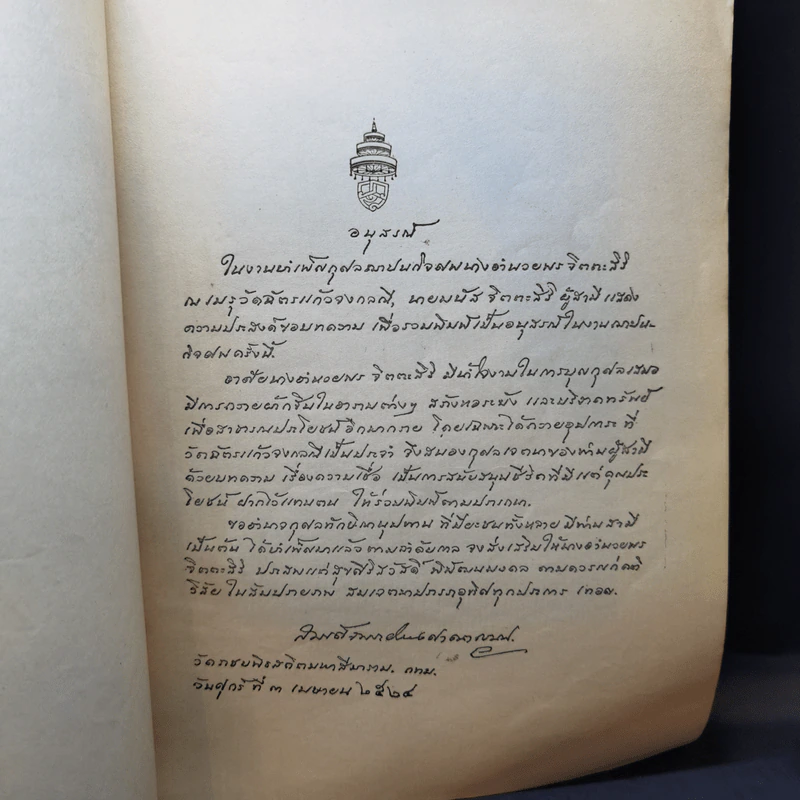 อนุสรณ์
ในงานบำเพ็ญกุศลฌาปนกิจศพนางอำนวยพร จิตตะสิริ
ณ เมรุวัดฉัตรแก้วจงกลณี, นายมนัส จิตตะสิริ ผู้สามี แสดง
ความประสงค์ขอบทความ เพื่อรวมพิมพ์เป็นอนุสรณ์ในงานฌาปน-
กิจศพครั้งนี้.
อาศัยนางอำนวยพร จิตตะสิริ มีน้ำใจงามในการบุญกุศลเสมอ
มีการถวายผ้ากฐินในอารามต่างๆ สร้างหอระฆัง และบริจาคทรัพย์
เพื่อสาธารณประโยชน์อีกมากราย โดยเฉพาะได้ถวายอุปการะ ที่
วัดฉัตรแก้วจงกลณีเป็นประจำ จึงสนองกุศลเจตนาของท่านผู้สามี
ด้วยบทความ เรื่องความเชื่อ เป็นการสนับสนุนชีวิตที่มีแต่คุณประ
โยชน์ ฝากไว้แทนตน ให้ร่วมพิมพ์ตามปรารถนา.
ขออำนาจกุศลทักษิณานุปทาน ที่ปิยะชนทั้งหลาย มีท่านสามี
เป็นต้น ได้บำเพ็ญมาแล้ว ตามลำดับกาล จงส่งเสริมให้นางอำนวยพร
จิตตะสิริ ประสพแต่สุขสิริสวัสดิ์ พิพัฒนมงคล ตามควรแก่คติ
วิสัย ในสัมปรายภพ สมเจตนาปรารภอุทิศทุกประการ เทอญ.
วัดราชบพิธสถิตมหาสีมาราม. กทม.
วันศุกร์ ที่ ๓ เมษายน ๒๕๒๔